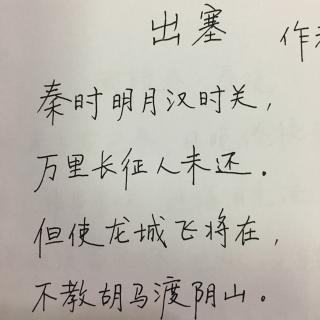 出塞 作
秦时明月汉时关，
万里长征人未还．
但使龙城飞将在，
不教胡马渡阴山。